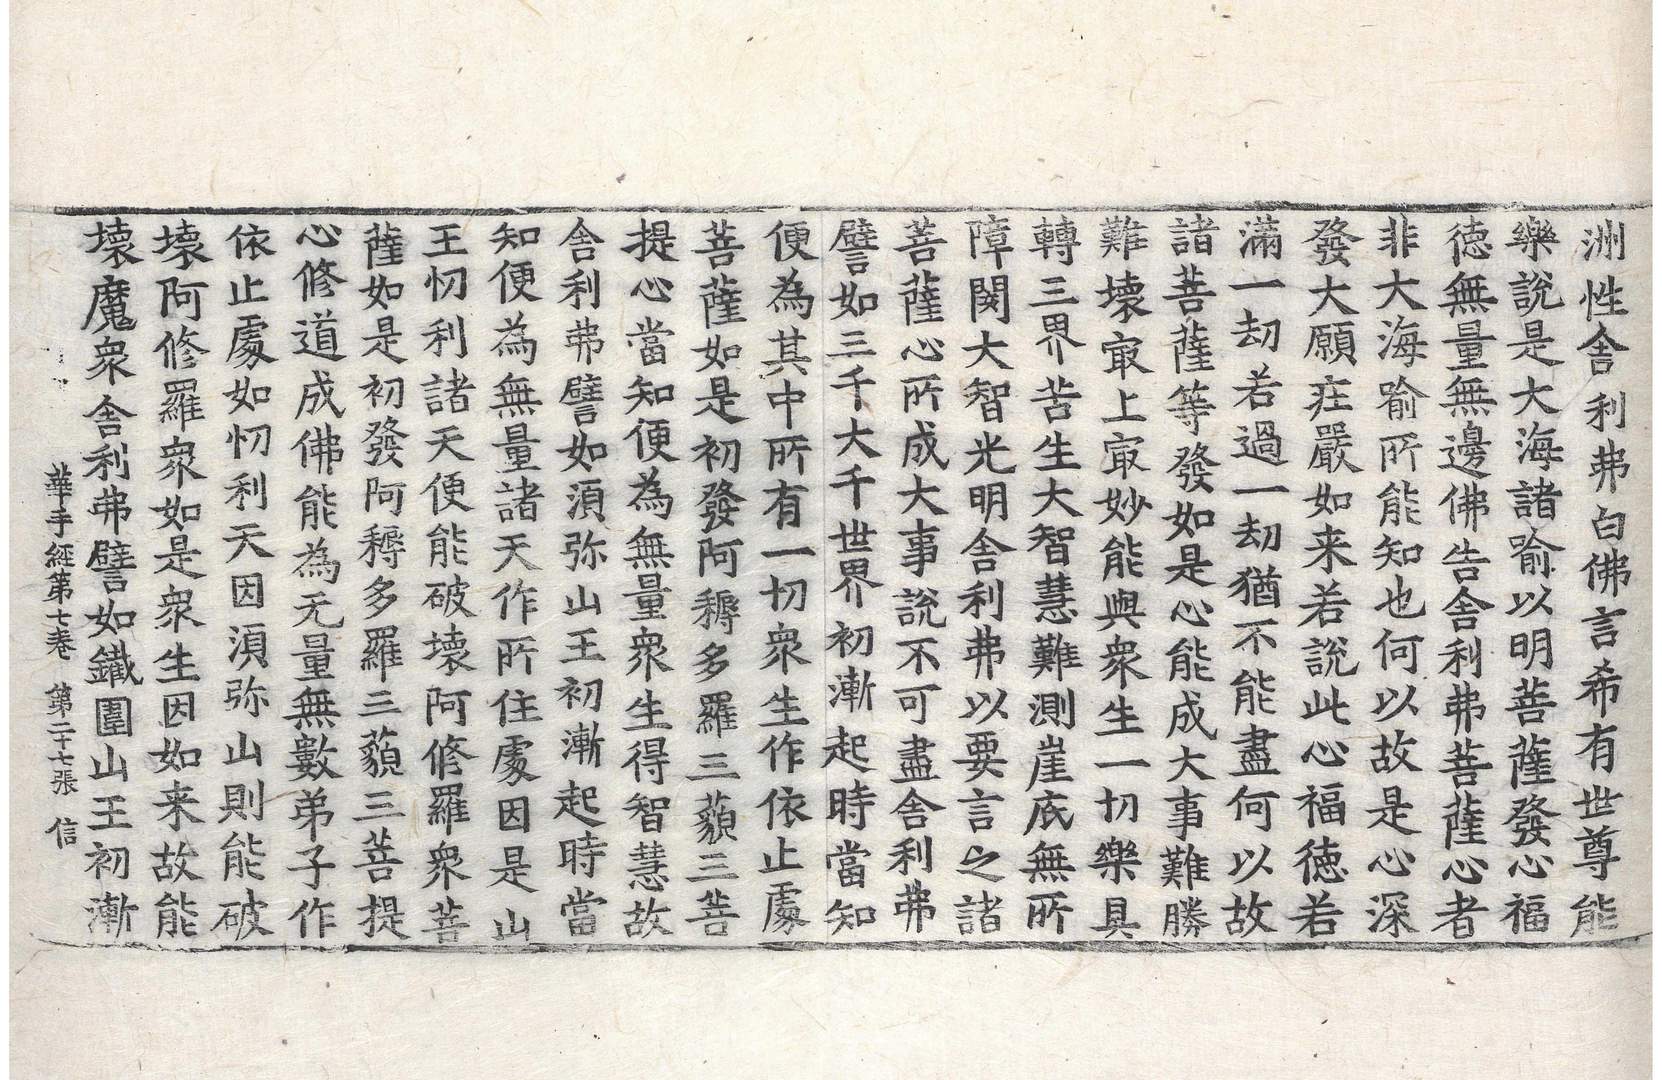 洲性舍利弗白佛言希有世尊能
樂說是大海諸喻以明菩薩發心福
徳無量無邊佛告舍利弗菩薩心者
非大海喻所能知也何以故是心深
發大願㽵嚴如来若說此心福徳若
滿一劫若過一劫猶不能盡何以故
諸菩薩等發如是心能成大事難勝
難壞㝡上㝡妙能與衆生一切樂具
轉三界苦生大智慧難測崖底無所
障閡大智光明舍利弗以要言之諸
菩薩心所成大事說不可盡舍利弗
譬如三千大千世界初漸起時當知
便為其中所有一切衆生作依止處
菩薩如是初發阿耨多羅三藐三菩
提心當知便為無量衆生得智慧故
舍利弗譬如湏弥山王初漸起時當
知便為無量諸天作所住處因是山
王忉利諸天便能破壞阿修羅衆菩
薩如是初發阿耨多羅三藐三菩提
心修道成佛能為无量無數弟子作
依止處如忉利天因湏弥山則能破
壞阿修羅衆如是衆生因如来故能
壞魔衆舍利弗譬如鐵圍山王初漸
華手經第七卷 第二十七張 信